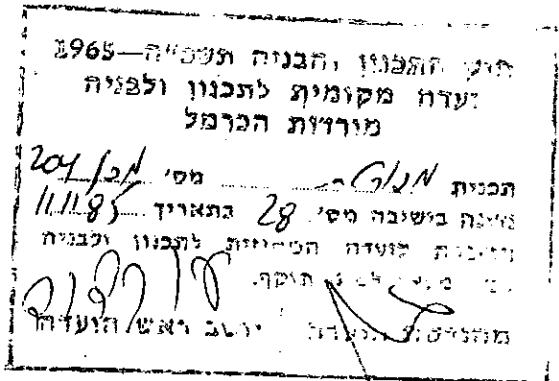 חוק התכנון והבניה תשכ"ה—1965
ועדה מקומית לתכנון ולבניה
מורדות הכרמל
תכנית מס' מכ/201
נדונה בישיבה מס' 28 בתאריך 11.11.85
לועדה המחוזית לתכנון ולבניה
תוקף.
מהנדס הועדה יושב ראש הועדה